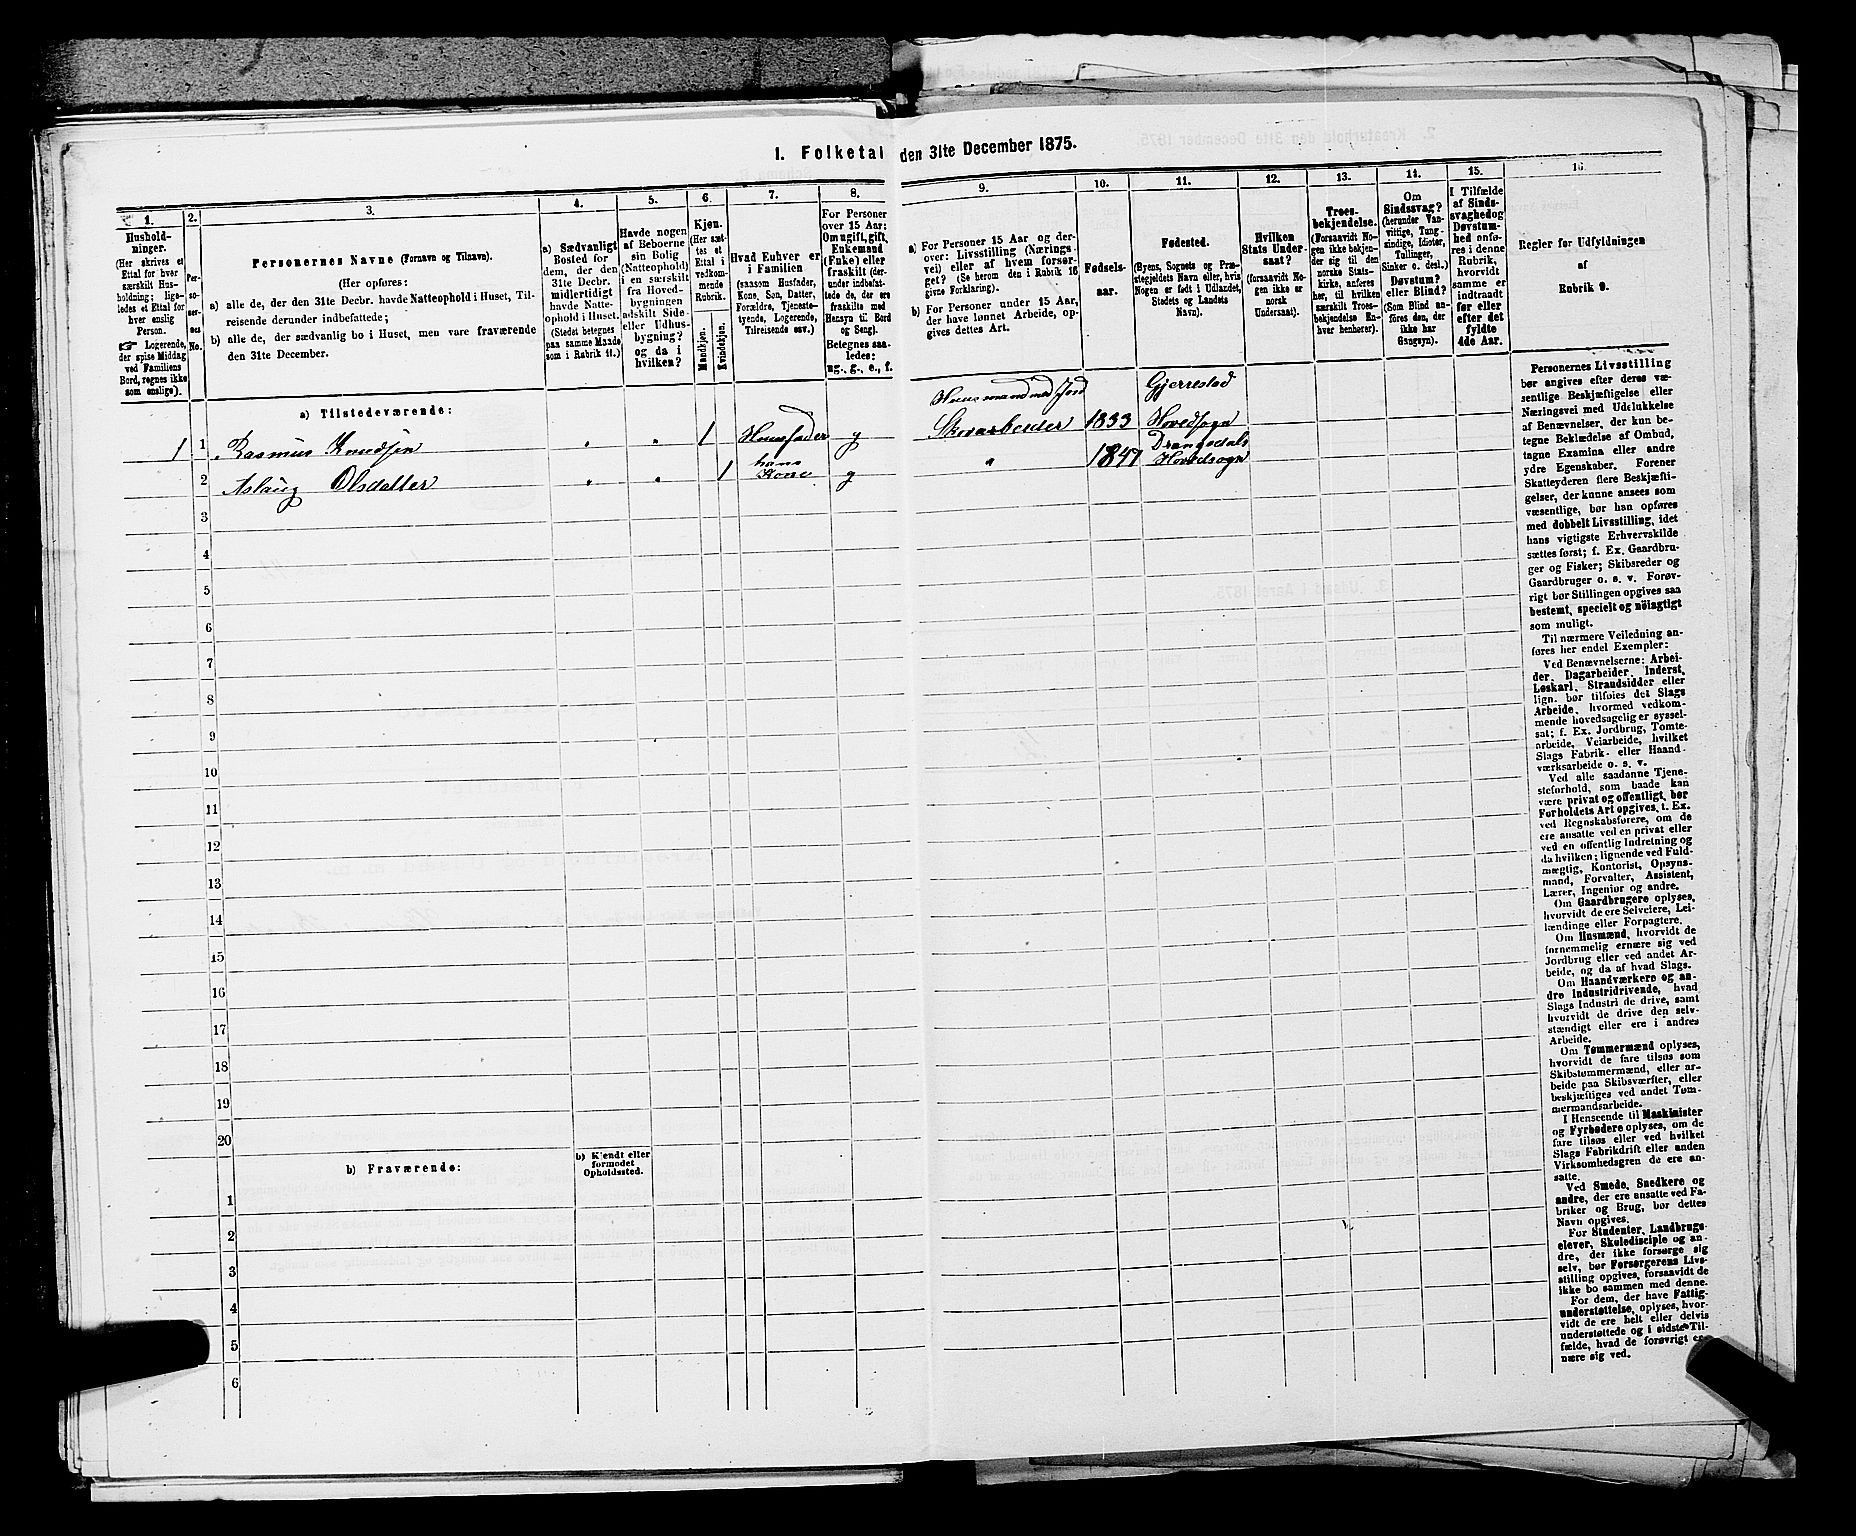 I. Folketal den 31te December 1875.
1.
Hushold-
ninger.
(Her skrives et
Ettal for hver
særskilt Hus-
holdning; lige-
ledes et Ettal for
hver enslig
Person.
☞ Logerende,
der spise Middag
ved Familiens
Bord, regnes ikke
som enslige).
2.
Per-
so-
ner-
nes
No.
3.
Personernes Navne (Fornavn og Tilnavn).
(Her opføres:
a) alle de, der den 31te Decbr. havde Natteophold i Huset, Til-
reisende derunder indbefattede;
b) alle de, der sædvanlig bo i Huset, men vare fraværende
den 31te December.
4.
a) Sædvanligt
Bosted for
dem, der den
31te Decbr.
midlertidigt
havde Natte-
ophold i Huset.
(Stedet betegnes
paa samme Maade
som i Rubrik 11.)
5.
Havde nogen
af Beboerne
sin Bolig
(Natteophold)
i en særskilt
fra Hoved-
bygningen
adskilt Side-
eller Udhus-
bygning?
og da i
hvilken?
6.
Kjøn.
(Her sæt-
tes et
Ettal i
vedkom-
mende
Rubrik.
Mandkjøn.
Kvindekjøn.
7.
Hvad Enhver er
i Familien
(saasom Husfader,
Kone, Søn, Datter,
Forældre, Tjeneste-
tyende, Logerende,
Tilreisende osv.)
8.
For Personer
over 15 Aar:
Om ugift, gift,
Enkemand
(Enke) eller
fraskilt (der-
under indbefat-
tede de, der
ere fraskilte med
Hensyn til Bord
og Seng).
Betegnes saa-
ledes:
ug., g., e., f.
9.
a) For Personer 15 Aar og der-
over: Livsstilling (Nærings-
vei) eller af hvem forsør-
get? (Se herom den i Rubrik 16
givne Forklaring).
b) For Personer under 15 Aar,
der have lønnet Arbeide, op-
gives dettes Art.
10.
Fødsels-
aar.
11.
Fødested.
(Byens, Sognets og Præ-
stegjeldets Navn eller, hvis
Nogen er født i Udlandet,
Stedets og Landets
Navn).
12.
Hvilken
Stats Under-
saat?
(forsaavidt No-
gen ikke er
norsk
Undersaat).
13.
Troes-
bekjendelse.
(Forsaavidt No-
gen ikke bekjen-
der sig til den
norske Stats-
kirke, anføres
her, til hvilken
særskilt Troes-
bekjendelse En-
hver henhører).
14.
Om
Sindssvag?
(herunder Van-
vittige, Tung-
sindige, Idioter,
Tullinger,
Sinker o. desl.)
Døvstum?
eller Blind?
(Som Blind an-
føres den, der
ikke har
Gangsyn).
15.
I Tilfælde
af Sinds-
svaghed og
Døvstum-
hed anfø-
res i denne
Rubrik,
hvorvidt
samme er
indtraadt
før eller
efter det
fyldte
4de Aar.
16.
Regler for Udfyldningen
af
Rubrik 9.
a) Tilstedeværende:
Huusmand med Jord Gjerrestad
1 1 Rasmus Knudsen „ „ 1 Huusfader g Skovarbeider 1833 Hovedsogn
hans Drangedals
2 Aslaug Olsdatter „ „ 1 Kone g „ 1847 Hovedsogn
3
4
5
6
7
8
9
10
11
12
13
14
15
16
17
18
19
20
b) Fraværende:
b) Kjendt eller
formodet
Opholdssted.
1
2
3
4
5
6
Personernes Livsstilling
bør angives efter deres væ-
sentlige Beskjæftigelse eller
Næringsvei med Udelukkelse
af Benævnelser, der kun be-
tegne Beklædelse af Ombud,
tagne Examina eller andre
ydre Egenskaber. Forener
Skatteyderen flere Beskjæfti-
gelser, der kunne ansees som
væsentlige, bør han opføres
med dobbelt Livsstilling, idet
hans vigtigste Erhvervskilde
sættes først; f. Ex. Gaardbru-
ger og Fisker; Skibsreder og
Gaardbruger o. s. v. Forøv-
rigt bør Stillingen opgives saa
bestemt, specielt og nöiagtigt
som muligt.
Til nærmere Veiledning an-
føres her endel Exempler:
Ved Benævnelserne: Arbei-
der, Dagarbeider, Inderst,
Løskarl, Strandsidder eller
lign. bør tilføies det Slags
Arbeide, hvormed vedkom-
mende hovedsagelig er syssel-
sat; f. Ex. Jordbrug, Tomte-
arbeide, Veiarbeide, hvilket
Slags Fabrik- eller Haand-
værksarbeide o. s. v.
Ved alle saadanne Tjene-
steforhold, som baade kan
være privat og offentligt, bør
Forholdets Art opgives, t. Ex.
ved Regnskabsførere, om de
ere ansatte ved en privat eller
ved en offentlig Indretning og
da hvilken; lignende ved Fuld-
mægtig, Kontorist, Opsyns-
mand, Forvalter, Assistent,
Lærer, Ingeniør og andre.
Om Gaardbrugere oplyses,
hvorvidt de ere Selveiere, Lei-
lændinge eller Forpagtere.
Om Husmænd, hvorvidt de
fornemmelig ernære sig ved
Jordbrug eller ved andet Ar-
beide, og da af hvad Slags.
Om Haandværkere og an-
dre Industridrivende, hvad
Slags Industri de drive, samt
hvorvidt de drive den selv-
stændigt eller ere i andres
Arbeide.
Om Tømmermænd oplyses,
hvorvidt de fare tilsøs som
Skibstømmermænd, eller ar-
beide paa Skibsværfter, eller
beskjæftiges ved andet Tøm-
mermandsarbeide.
I Henseende til Maskinister
og Fyrbødere oplyses, om de
fare tilsøs eller ved hvilket
Slags Fabrikdrift eller anden
Virksomhedsgren de ere an-
satte.
Ved Smede, Snedkere og
andre, der ere ansatte ved Fa-
briker og Brug, bør dettes
Navn opgives.
For Studenter, Landbrugs-
elever, Skoledisciple og an-
dre, der ikke forsørge sig
selv, bør Forsørgerens Livs-
stilling opgives, forsaavidt de
ikke bo sammen med denne.
For dem, der have Fattig-
understøttelse, oplyses, hvor-
vidt de ere helt eller delvis
understøttede og i sidste Til-
fælde, hvad de forøvrigt er-
nære sig ved.